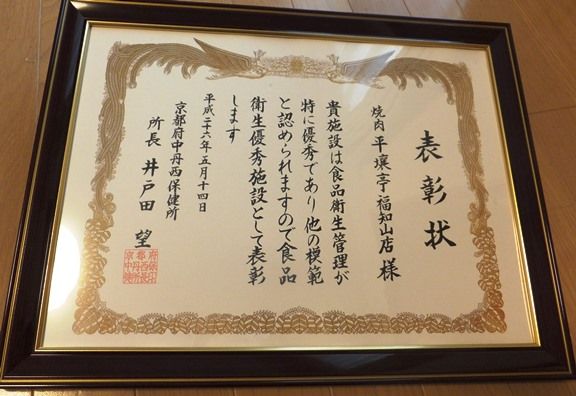 表彰状
焼肉 平壌亭 福知山店 様
貴施設は食品衛生管理が
特に優秀であり他の模範
と認められますので食品
衛生優秀施設として表彰
します
平成二十六年五月十四日
京都府中丹西保健所
所長 井戸田 望